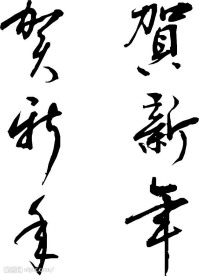 賀新年
贺新年